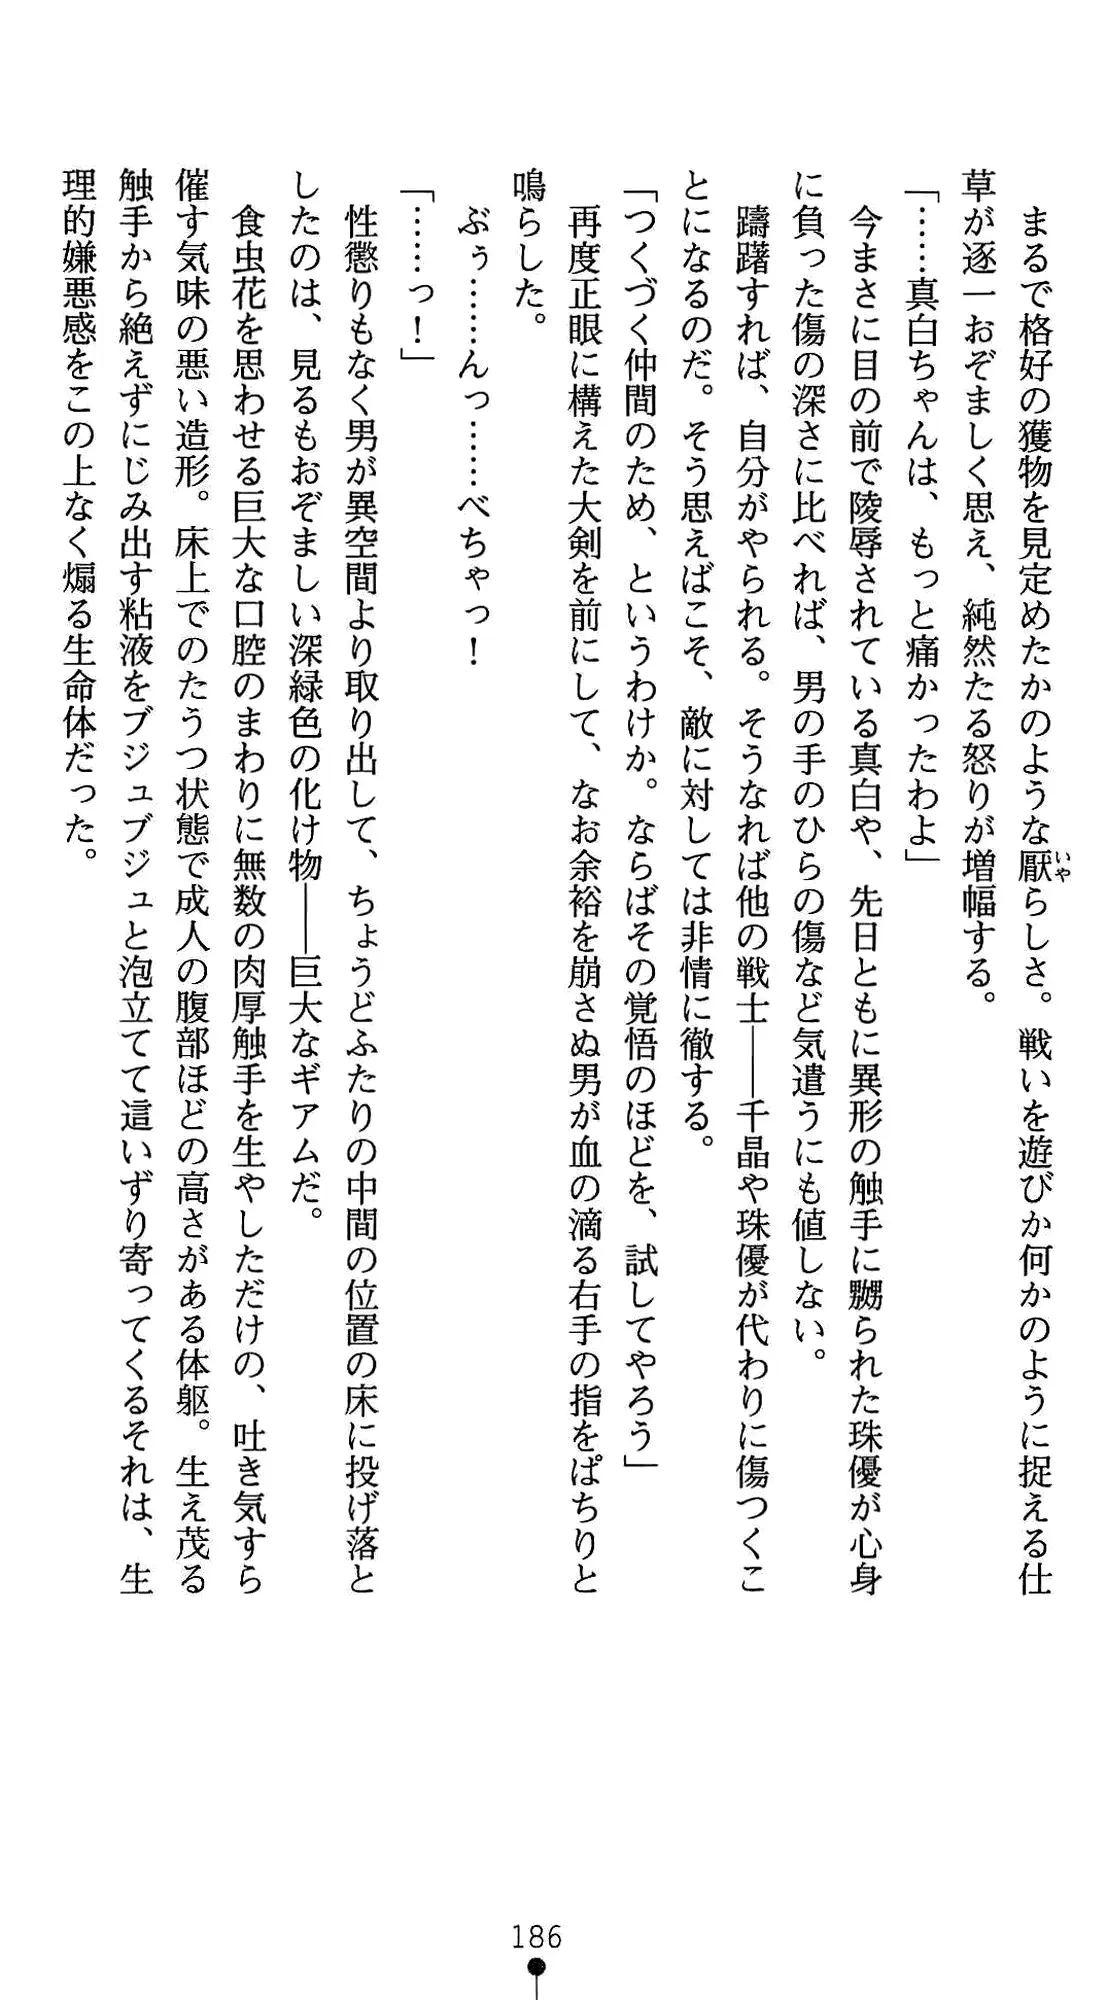 まるで格好の獲物を見定めたかのような厭らしさ。戦いを遊びか何かのように捉える仕
いや
草が逐一おぞましく思え、純然たる怒りが増幅する。
「……真白ちゃんは、もっと痛かったわよ」
今まさに目の前で陵辱されている真白や、先日ともに異形の触手に嬲られた珠優が心身
に負った傷の深さに比べれば、男の手のひらの傷など気遣うにも値しない。
躊躇すれば、自分がやられる。そうなれば他の戦士――千晶や珠優が代わりに傷つくこ
とになるのだ。そう思えばこそ、敵に対しては非情に徹する。
「つくづく仲間のため、というわけか。ならばその覚悟のほどを、試してやろう」
再度正眼に構えた大剣を前にして、なお余裕を崩さぬ男が血の滴る右手の指をぱちりと
鳴らした。
ぶぅ……んっ……べちゃっ！
「……っ！」
性懲りもなく男が異空間より取り出して、ちょうどふたりの中間の位置の床に投げ落と
したのは、見るもおぞましい深緑色の化け物――巨大なギアムだ。
食虫花を思わせる巨大な口腔のまわりに無数の肉厚触手を生やしただけの、吐き気すら
催す気味の悪い造形。床上でのたうつ状態で成人の腹部ほどの高さがある体躯。生え茂る
触手から絶えずにじみ出す粘液をブジュブジュと泡立てて這いずり寄ってくるそれは、生
理的嫌悪感をこの上なく煽る生命体だった。
186